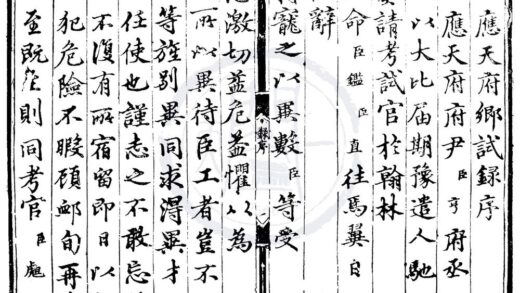 應天府鄉試錄序
應天府府尹臣亨府丞
以大比届期豫遣人馳
請考試官於翰林
命臣鑑臣直往焉翼日
辭
錄序
寵之以異數臣等受
激切益危益懼以為
所以異待臣工者豈不
等旌別異同求得異才
任使也謹志之不敢忘
不復有所宿留即日以
犯危險不暇顧卹旬再
至既至則同考官臣彪